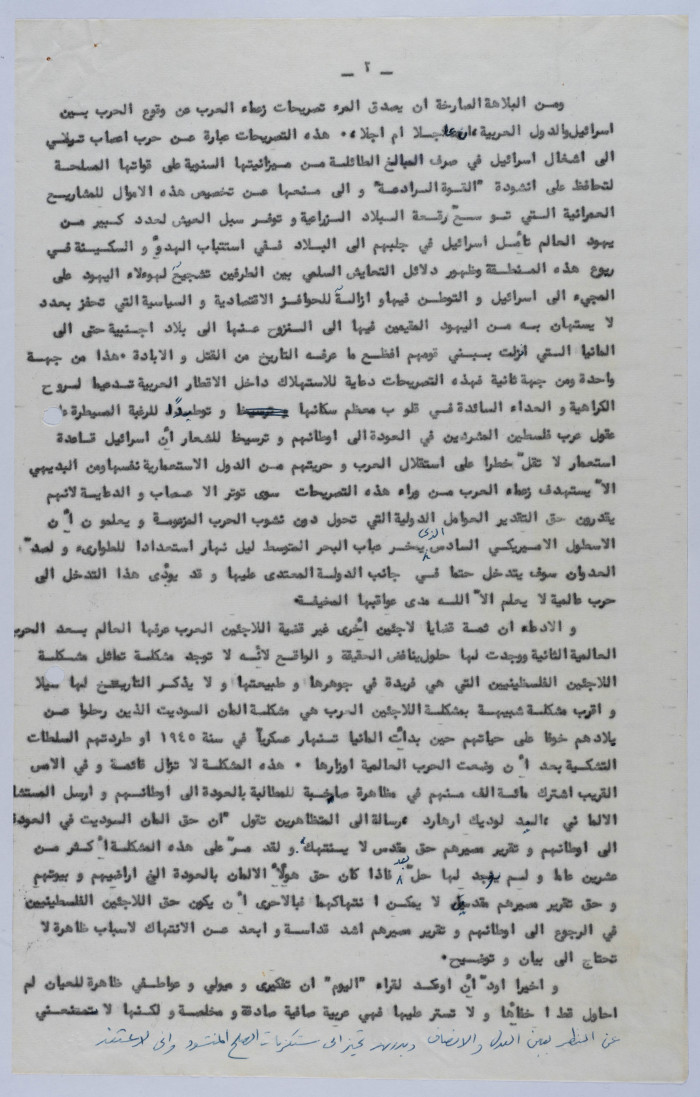 — ٢ —
ومن البلاهة الصارخة ان يصدق المرء تصريحات زعماء العرب عن وقوع الحرب بين
اسرائيل والدول العربية، ان عاجلا ام اجلا، هذه التصريحات عبارة عن حرب اعصاب ترمي
الى اشغال اسرائيل في صرف المبالغ الطائلة من ميزانيتها السنوية على قواتها المسلحة
لتحافظ على انشودة "القوة الرادعة" و الى منعها عن تخصيص هذه الاموال للمشاريع
العمرانية التي توسعّ رقعة البلاد الزراعية و توفر سبل العيش لعدد كبير من
يهود العالم تأمل اسرائيل في جلبهم الى البلاد ففي استتباب الهدوّ و السكينة في
ربوع هذه المنطقة وظهور دلائل التعايش السلمي بين الطرفين تشجيع لهوءلاء اليهود على
المجيء الى اسرائيل و التوطن فيها و ازالة للحوافز الاقتصادية و السياسية التي تحفز بعدد
لا يستهان به من اليهود المقيمين فيها الى النزوح عنها الى بلاد اجنبية حتى الى
المانيا التي انزلت ببني قومهم افظع ما عرفه التاريخ من القتل و الابادة . هذا من جهة
واحدة ومن جهة ثانية فهذه التصريحات دعاية للاستهلاك داخل الاقطار العربية تدعيما لروح
الكراهية و العداء السائدة في قلوب معظم سكانها و توطيدًا للرغبة المسيطرة على
عقول عرب فلسطين المشردين في العودة الى اوطانهم و ترسيخا للشعار أنّ اسرائيل قاعدة
استعمار لا تقلّ خطرا على استقلال العرب و حريتهم من الدول الاستعمارية نفسها ومن البديهي
الاّ يستهدف زعماء العرب من وراء هذه التصريحات سوى توتر الاعصاب و الدعاية لانهم
يقدرون حق التقدير العوامل الدولية التي تحول دون نشوب الحرب المزعومة و يعلمون أن
الاسطول الاميريكي السادس الذى يمخر عباب البحر المتوسط ليل نهار استعدادا للطوارىء و لصدّ
العدوان سوف يتدخل حتما في جانب الدولة المعتدى عليها و قد يودّى هذا التدخل الى
حرب عالمية لا يعلم الاّ الله مدى عواقبها المخيفة.
و الادعاء ان ثمة قضايا لاجئين أخرى غير قضية اللاجئين العرب عرفها العالم بعد الحرب
العالمية الثانية ووجدت لها حلول يناقض الحقيقة و الواقع لانّه لا توجد مشكلة تماثل مشكلة
اللاجئين الفلسطينيين التي هي فريدة في جوهرها و طبيعتها و لا يذكر التاريخ لها مثيلا
و اقرب مشكلة شبيهة بمشكلة اللاجئين العرب هي مشكلة المان السوديت الذين رحلوا عن
بلادهم خوفا على حياتهم حين بدأت المانيا تنهار عسكرياً في سنة ١٩٤٥ او طردتهم السلطات
التشكية بعد أن وضعت الحرب العالمية اوزارها . هذه المشكلة لا تزال قائمة و في الامس
القريب اشترك مائة الف منهم في مظاهرة صاخبة للمطالبة بالعودة الى اوطانهم و ارسل المستشار
الالماني ، السيد لوديك ارهارد ، رسالة الى المتظاهرين تقول "ان حق المان السوديت في العودة
الى اوطانهم و تقرير مصيرهم حق مقدس لا ينتهك" و لقد مرّ على هذه المشكلة أكثر من
عشرين عاما و لم يوجد لها حلّ بعد فاذا كان حق هولأ الالمان بالعودة الى اراضيهم و بيوتهم
و حق تقرير مصيرهم مقدسين لا يمكن انتهاكهما فبالاحرى أن يكون حق اللاجئين الفلسطينيين
في الرجوع الى اوطانهم و تقرير مصيرهم اشد قداسة و ابعد عن الانتهاك لاسباب ظاهرة لا
تحتاج الى بيان و توضيح.
و اخيرا اودّ أن أوكد لقراء "اليوم" ان تفكيرى و ميولي و عواطفي ظاهرة للعيان لم
احاول قط اخفاءها و لا تستر عليها فهي عربية صافية صادقة و مخلصة و لكنها لا تمنعني
عن النظر بعين العدل والانصاف الصلح المنشود وانى لاعتقد